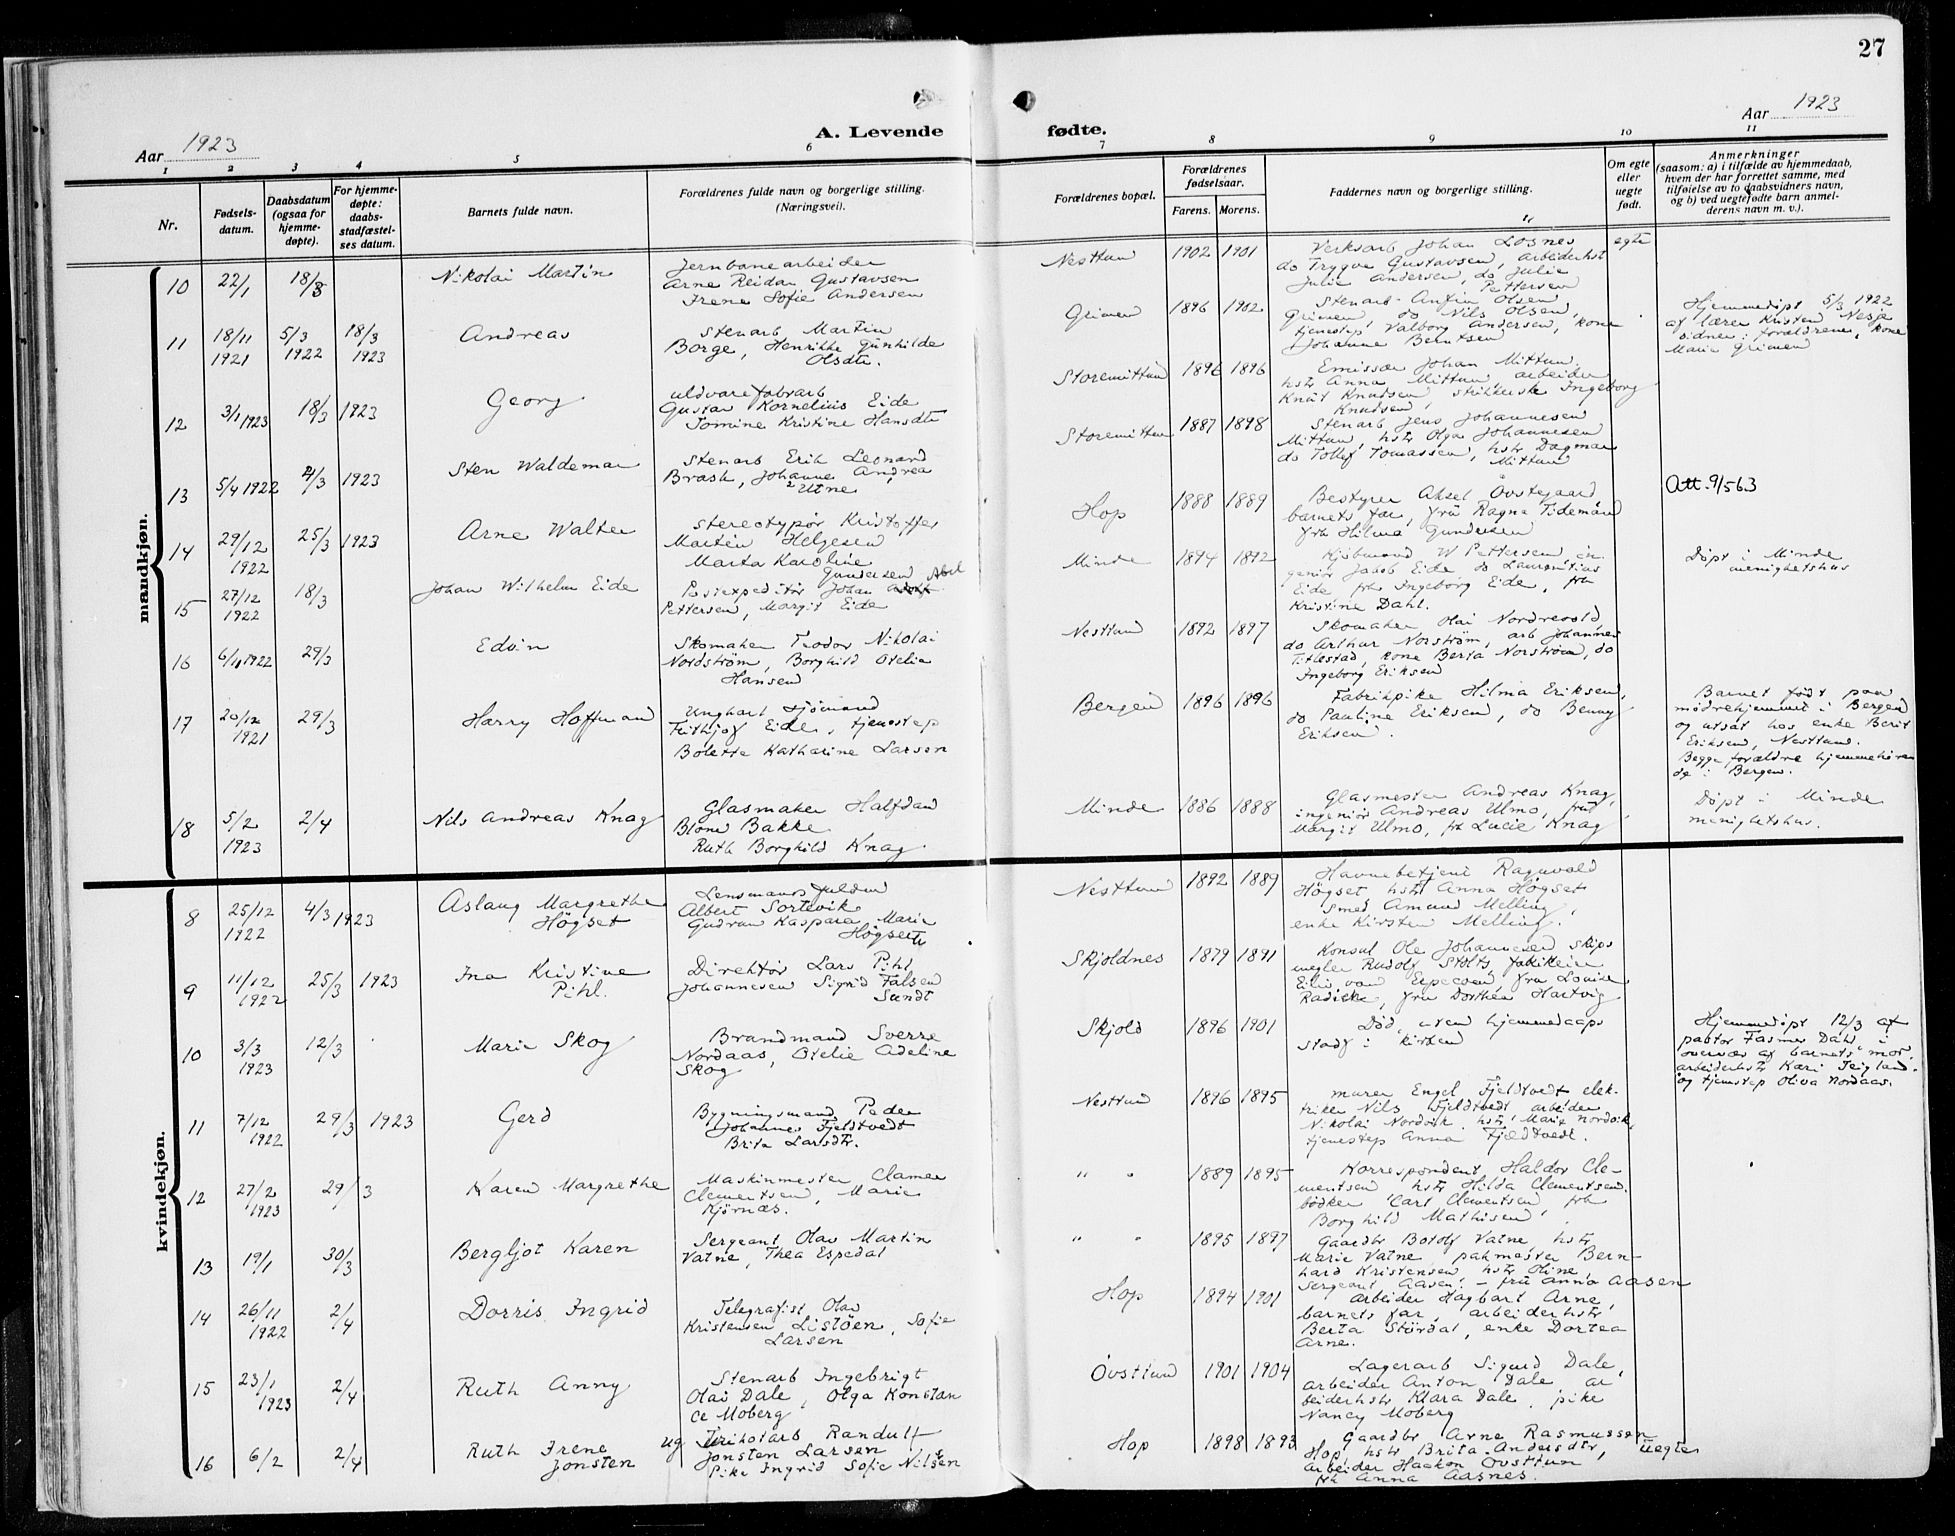 27
Aar 1923
A. Levende fødte.
Aar 1923
1 2 3 4 5 6 7 8 9 10 11
Nr.
Fødsels-
datum.
Daabsdatum
(ogsaa for
hjemme-
døpte).
For hjemme-
døpte:
daabs-
stadfæstel-
ses datum.
Barnets fulde navn.
Forældrenes fulde navn og borgerlige stilling.
(Næringsvei).
Forældrenes bopæl.
Forældrenes
fødselsaar.
Farens. Morens.
Faddernes navn og borgerlige stilling.
Om egte
eller
uegte
født.
Anmerkninger
(saasom: a) i tilfælde av hjemmedaab,
hvem der har forrettet samme, med
tilføielse av to daabsvidners navn,
og b) ved uegtefødte barn anmel-
derens navn m. v.).
mandkjøn.
10 22/1 18/3 Nikolai Martin
Jernbanearbeider
Arne Reidar Gustavsen
Irene Sofie Andersen
Nesttun 1902 1901
Verksarb Johan Losnes
do Trygve Gustavsen, arbeiderhst
Julie Andersen, do Julie
Pettersen
egte
11 18/11 1921 5/3 1922 18/3 1923 Andreas
Stenarb Martin
Borge, Henrikke Gunhilde
Olsdtr.
Grimen 1896 1902
Stenarb Anfin Olsen
Grimen, do Nils Olsen,
tjenestep Valborg Andersen, kone
Johanne Berntsen
Hjemmedøpt 5/3 1922
af lærer Kristen Nesje
vidner: forældrene, kone
Marie Grimen
12 3/1 1923 18/3 1923 Georg
uldvarefabrarb
Gustav Kornelius Eide
Tomine Kristine Hansdtr
Storemittun 1896 1896
Emissær Johan Mittun,
hstr Anna Mittun, arbeider
Knut Knudsen, strikkerske Ingeborg
Knudsen,
13 5/4 1922 4/3 1923 Sten Waldemar
Stenarb Erik Leonard
Brask, Johanne Andrea
Utne
Storemittun 1887 1898
Stenarb Jens Johannesen
Mittun, hstr Olga Johannesen
do Tollef Tomassen, hstr Dagmar
Mittun
Att. 9/563
14 29/12 1922 25/3 1923 Arne Walter
Stereotypør Kristoffer
Martin Helgesen
Marta Karoline
Gundersen
Hop 1888 1889
Bestyrer Aksel Øvstegaard
barnets far, fru Ragna Tidemand
frk Hilma Gundersen
15 27/12 1922 18/3 Johan Wilhelm Eide
Postexpeditør Johan Abel
Pettersen, Margit Eide
Minde 1894 1892
Kjøbmand W Pettersen, in-
geniør Jakob Eide do Laurentius
Eide, frk Ingeborg Eide, frk
Kristine Dahl.
Døpt i Minde
menighetshus
16 6/11 1922 29/3 Edvin
Skomaker Teodor Nikolai
Nordstrøm, Borghild Otelia
Hansen
Nesttun 1892 1897
Skomaker Olai Nordrevold
do Arthur Norstrøm, arb Johannes
Titlestad, kone Berta Norstrøm, do
Ingeborg Eriksen
17 20/12 1921 29/3 Harry Hoffmand
Ungkarl sjømand
Frithjof Eide, tjenestep
Bolette Katharine Larsen
Bergen 1896 1896
Fabrikpike Hilma Eriksen,
do Pauline Eriksen, do Benny
Eriksen.
Barnet født paa
mødrehjemmet i Bergen
og utsat hos enke Berit
Eriksen, Nesttun.
Begge forældre hjemmehøren
de i Bergen.
18 5/2 1923 2/4 Nils Andreas Knag
Glasmaker Halfdan
Blone Bakke
Ruth Borghild Knag.
Minde 1886 1888
Glasmester Andreas Knag,
ingeniør Andreas Ulmo, fru
Margit Ulmo, frk Lucie Knag
Døpt i Minde
menighetshus.
kvindekjøn.
8 25/12 1922 4/3 1923 Aslaug Margrethe
Høgset
Lensmansfuldm
Albert Sortevik
Gudrun Kaspara Marie
Høgseth
Nesttun 1892 1889
Havnebetjent Ragnvald
Høgset, hstr Anna Høgset
Smed Amund Melling,
enke Kirsten Melling.
9 11/12 1922 25/3 1923 Ina Kristine
Pihl.
Direktør Lars Pihl
Johannesen Sigrid Falsen
Sundt
Skjoldnes 1879 1891
Konsul Ole Johannesen skips
megler Rudolf Stoltz fabrikeier
Eilif von Erpecom, fru Louise
Radicke, fru Dorthea Hartvig
10 3/3 1923 12/3 Marie Skog
Brandmand Sverre
Nordaas, Otelie Adeline
Skog
Skjold 1896 1901
Død uten hjemmedaaps
stadf i kirken
Hjemmedøpt 12/3 af
pastor Fasmer Dahl i
overvær af barnets mor.
arbeiderhstr Kari Teigland.
og tjenestep Oliva Nordaas.
11 7/12 1922 29/3 1923 Gerd
Bygningsmand Peder
Johannes Fjeldtvedt
Brita Larsdtr.
Nesttun 1896 1895
murer Engel Fjeldtvedt elek-
triker Nils Fjeldtvedt arbeider
Nikolai Nordvik. hstr Marie Nordvik,
tjenestep Anna Fjeldtvedt.
12 27/2 1923 29/3 Karen Margrethe
Maskinmester Clamer
Clementsen, Marie
Kjørnæs.
" " 1889 1895
Korrespondent Haldor Cle-
mentsen hstr Hilda Clementsen.
bødker Carl Clementsen frk
Borghild Mathisen
13 19/1 30/3 Bergljot Karen
Sergeant Olav Martin
Vatne, Thea Espedal
" " 1895 1897
Gaardbr Botolf Vatne hstr
Marie Vatne pakmester Bern-
hard Kristensen hstr Oline
Sergeant Aasen. - fru Anna Aasen
14 26/11 1922 2/4 Dorris Ingrid
Telegrafist Olav
Kristensen Listøen, Sofie
Larsen
Hop 1894 1901
arbeider Hagbart Arne,
barnets far, arbeiderhstr
Berta Størdal, enke Dortea
Arne.
15 23/1 1923 2/4 Ruth Anny
Stenarb Ingebrigt
Olai Dale, Olga Konstan
ce Moberg
Øvsttun 1901 1904
Lagerarb Sigurd Dale,
arbeider Anton Dale ar
beiderhstr Klara Dale, pike
Nancy Moberg
16 6/2 2/4 Ruth Irene
Jonsten
ug Trikotarb Randulf
Jonsten Larsen
Pike Ingrid Sofie Nilsen
Hop 1898 1893
Gaardbr Arne Rasmussen
Hop, hstr Brita Andersdtr,
arbeider Haakon Øvsttun
frk Anna Aasnes.
uegte